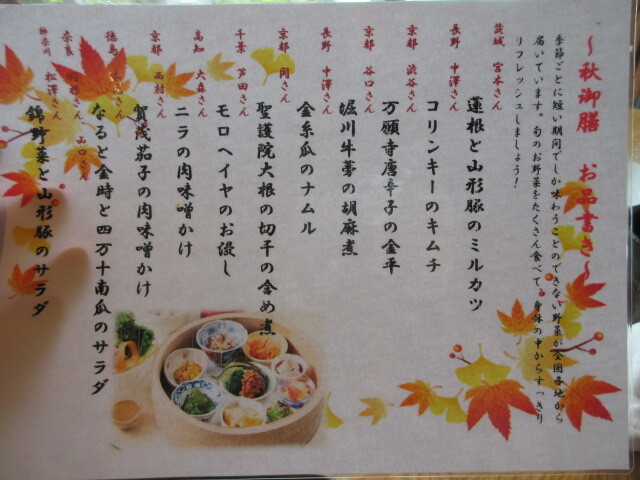 ～秋御膳　お品書き～
季節ごとに短い期間でしか味わうことのできない野菜が全国各地から
届いています。旬のお野菜をたくさん食べて、身体の中からすっきり
リフレッシュしましょう！
茨城　宮本さん
蓮根と山形豚のミルカツ
長野　中澤さん
コリンキーのキムチ
京都　渋谷さん
万願寺唐辛子の金平
京都　谷口さん
堀川牛蒡の胡麻煮
長野　中澤さん
金糸瓜のナムル
京都　関さん
聖護院大根の切干の含め煮
千葉　芦田さん
モロヘイヤのお浸し
高知　大森さん
ニラの肉味噌かけ
京都　西村さん
賀茂茄子の肉味噌かけ
徳島
さん
なると金時と四万十南瓜のサラダ
奈良
さん　山口さん
神奈川　松澤さん
錦野菜と山形豚のサラダ